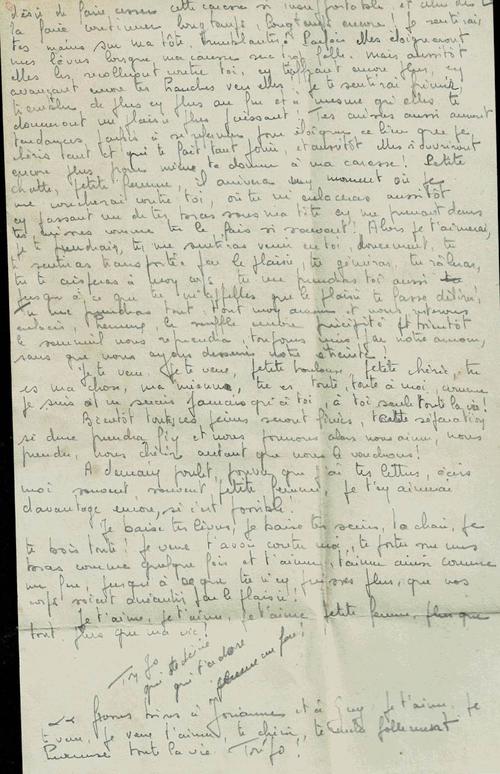 désir de faire cesser cette caresse si insupportable et celui de
la faire continuer longtemps, longtemps encore! Je sentirais
tes mains sur ma tête, tremblantes! Parfois elles éloigneront
mes lèvres lorsque ma caresse sera trop folle. Mais aussitôt
elles les recolleront contre toi, en
avançant encore tes hanches vers elles! Je te sentirai frémir,
trembler de plus en plus au fur et à mesure qu'elles te
donneront un plaisir plus puissant! Tes cuisses auront
tendances parfois à se refermer pour éloigner ce lien que je
chéris tant et qui te fait tant jouir et aussitôt elles s'ouvriront
encore plus pour mieux te donner à ma caresse! Petite
chatte, petite femme, il arrivera un moment où je
me coucherai contre toi, où tu m'enlaceras aussitôt
en passant un de tes bras sous ma tête en me prenant dans
tes cuisses comme tu le fais si souvent! Alors je t'aimerai,
je te prendrai, tu me sentiras venir en toi, doucement, tu
te sentiras transportée par le plaisir, tu gémiras, tu râleras,
tu me prendras toi aussi
jusqu'à ce que tu m'appelles que le plaisir te fasse délirer!
Tu me prendras tout, tout mon amour et nous resterons
enlacés, femme, le souffle encore précipité et bientôt
le sommeil nous reprendra, toujours unis par notre amour,
sans que nous ayons desserré notre étreinte!
Je te veux, je te veux, petite poulette, petite chérie, tu
es ma chose, ma mienne, tu es toute, toute à moi, comme
je suis et ne serais jamais qu'à toi, à toi seule toute la vie!
Bientôt toutes ces peines seront finies, cette séparation
si dure prendra fin et nous pourrons alors nous aimer, nous
prendre, nous chérir autant que nous le voudrons!
A demain poulet, pourvu que j'ai tes lettres, écris
moi souvent, souvent petite femme, je t'en aimerai
davantage encore, si c'est possible!
Je baise tes lèvres, je baise tes seins, ta chair, je
te bois toute! Je veux t'avoir contre moi, te porter sur mes
bras comme quelque fois et t'aimer, t'aimer ainsi comme
un fou, jusqu'à ce que tu n'en puisses plus, que nos
corps soient anéantis par le plaisir!
Je t'aime, je t'aime, je t'aime petite femme, plus que
tout plus que ma vie!
qui te désire
qui t'adore
comme un fou!
Bonnes bises à et à Guy. Je t'aime. Je
te veux, je veux t'aimer, te chérir, te follement
toute la vie.